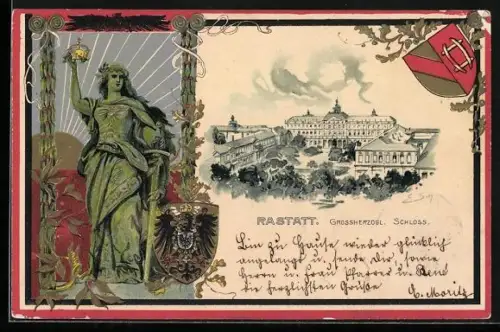 RASTATT. GROSSHERZOGL. SCHLOSS.
Bin zu Hause wieder glücklich
angelangt u. sende dir, sowie
Herrn u. Frau Pfarrer u. René
die herzlichsten Grüße
E. Moritz